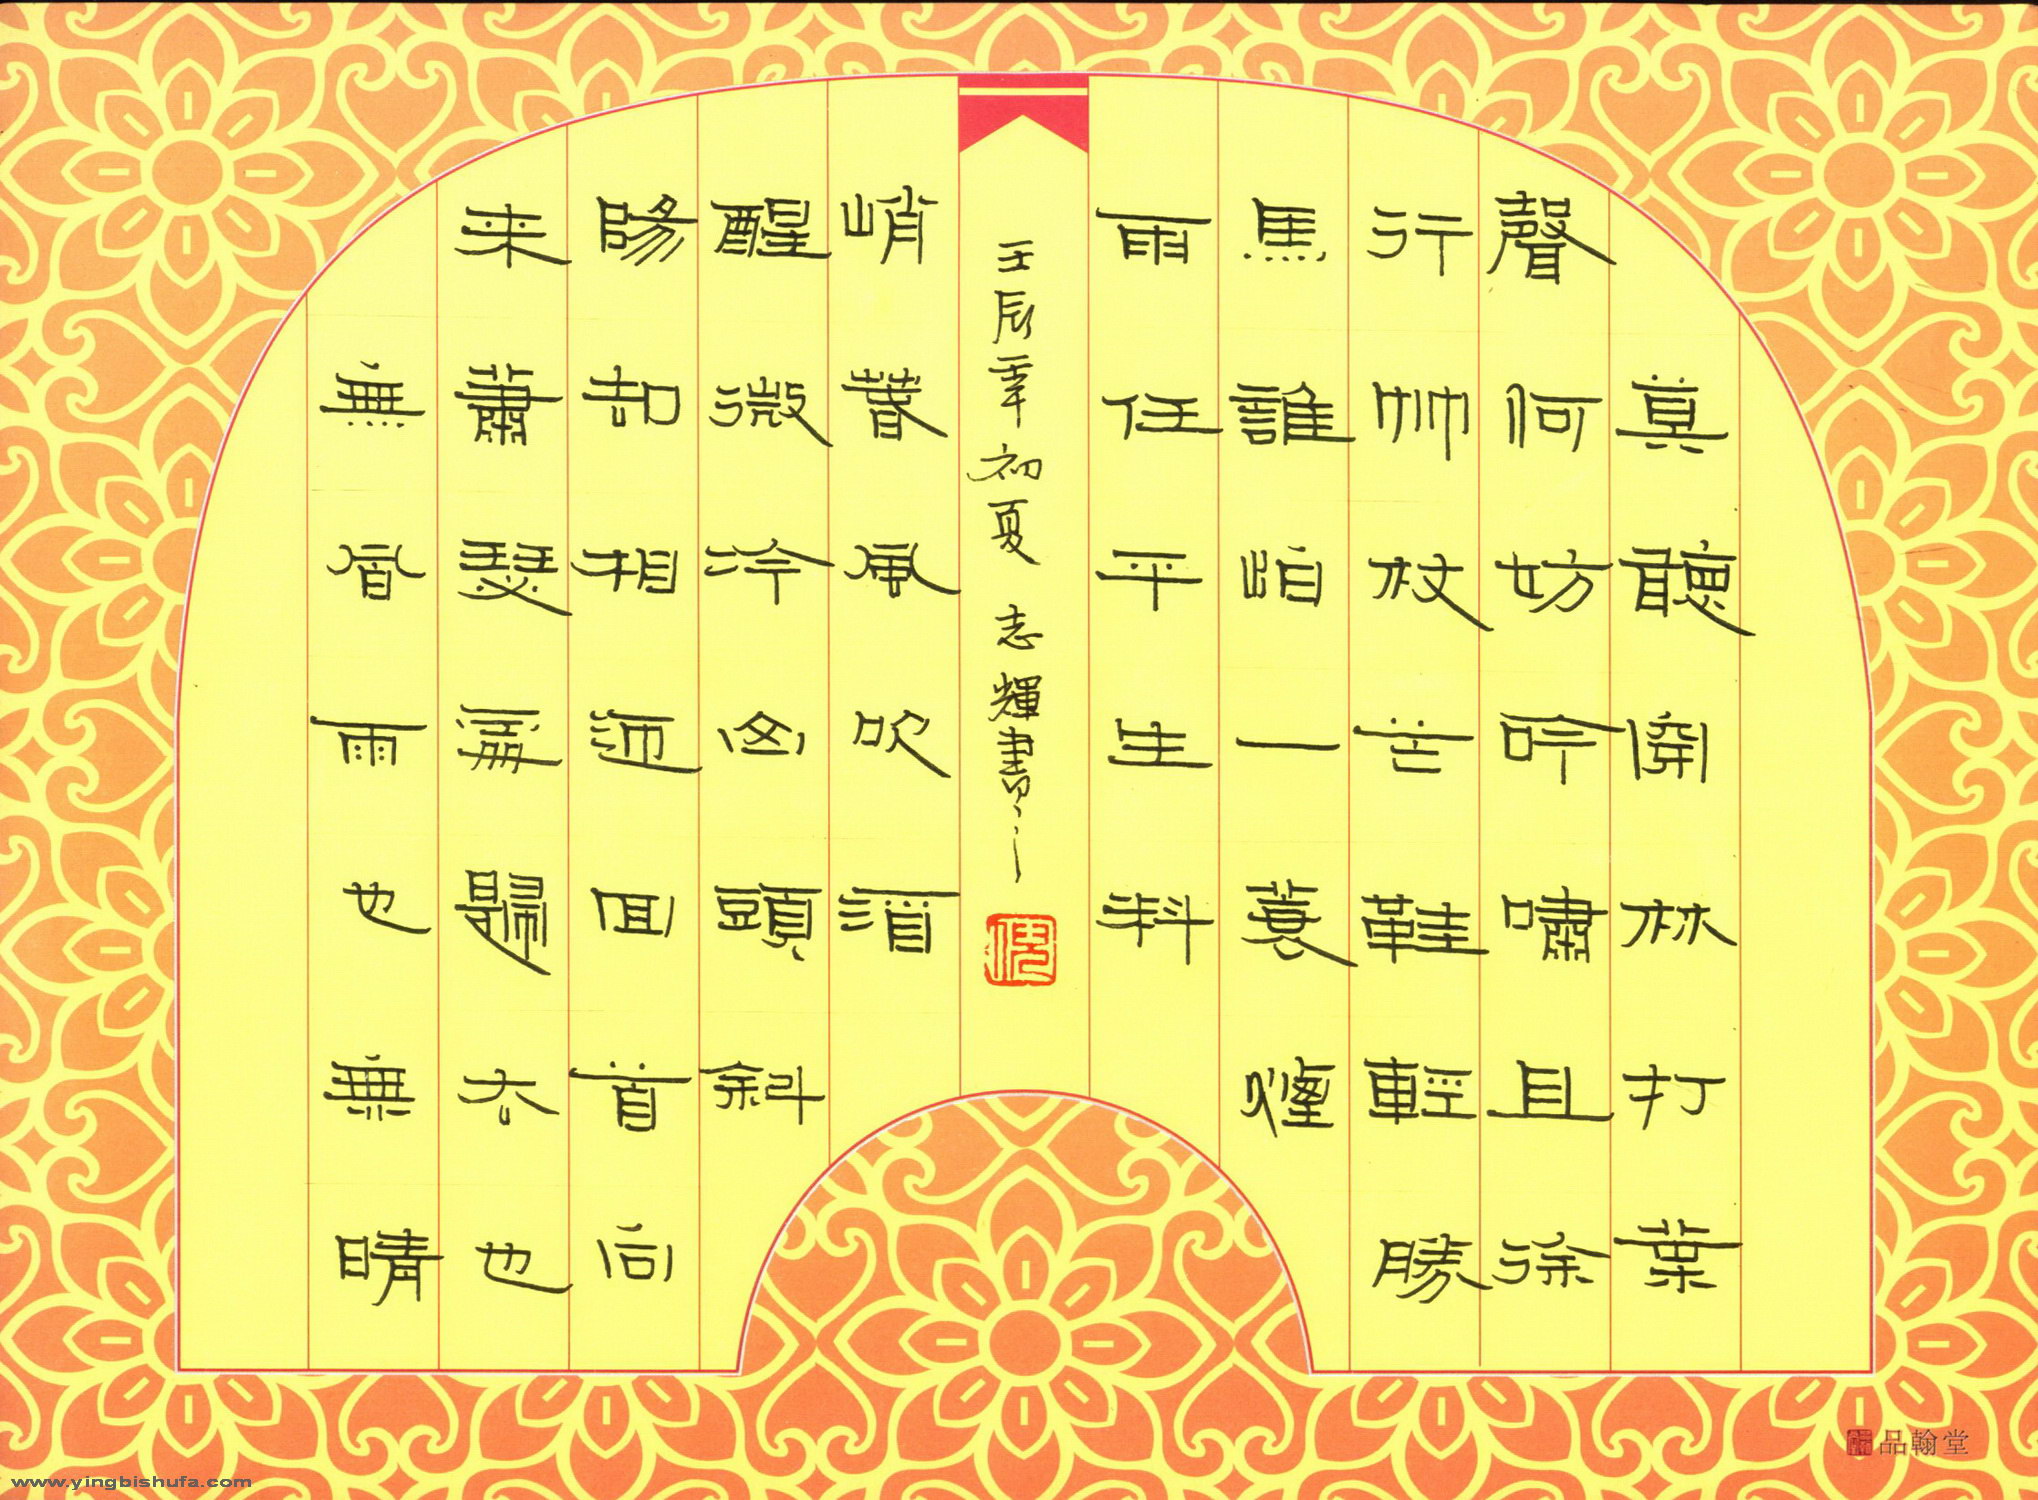 莫聽穿林打葉
聲何妨吟嘯且徐
行竹杖芒鞋輕勝
馬誰怕一蓑煙
雨任平生料
壬辰年初夏 志輝書
峭春風吹酒
醒微冷山頭斜
陽却相迎回首向
来蕭瑟處歸去也
無風雨也無晴
品翰堂
www.yingbishufa.com